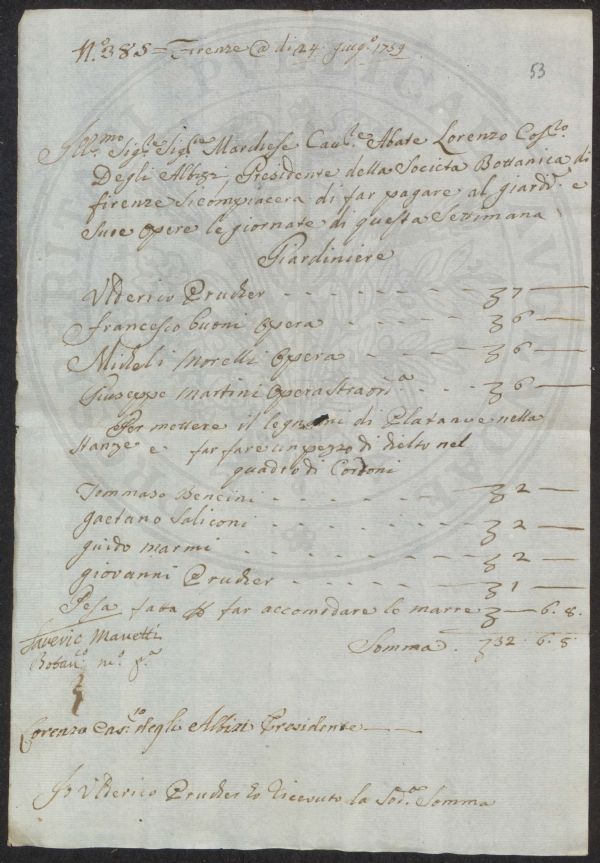 N.º 385 = Firenze @ di 24 giug.º 1739
53
Ill.mo Sig.re Sig.re Marchese Cav.re Abate Lorenzo Cos.to
Degli Albizi Presidente della Società Bottanica di
firenze si compiacerà di far pagare al giard.e e
sure opere le giornate di questa Settimana
Giardiniere
Ulderico Prucker - - - - 7 —
francesco buoni opera - - - 6 —
Micheli morelli opera - - - 6 —
Giuseppe martini opera straor.a - - 6 —
Per mettere il legnami di Platano nella
stanze e far fare un pezzo di
quadro di
Tommaso Bencini - - - - 2 —
gaetano saliconi - - - - 2 —
guido marmi - - - - 2 —
giovanni Prucker - - - - 1 —
Pesa fata far accomodare le marre — 6. 8.
Saverio Manetti
Somma. 32. 6. 8
Botan.co m.o p.a
Lorenzo Cas.to degli Albizi Presidente
Io Ulderico Prucker ho ricevuto la sod.a Somma